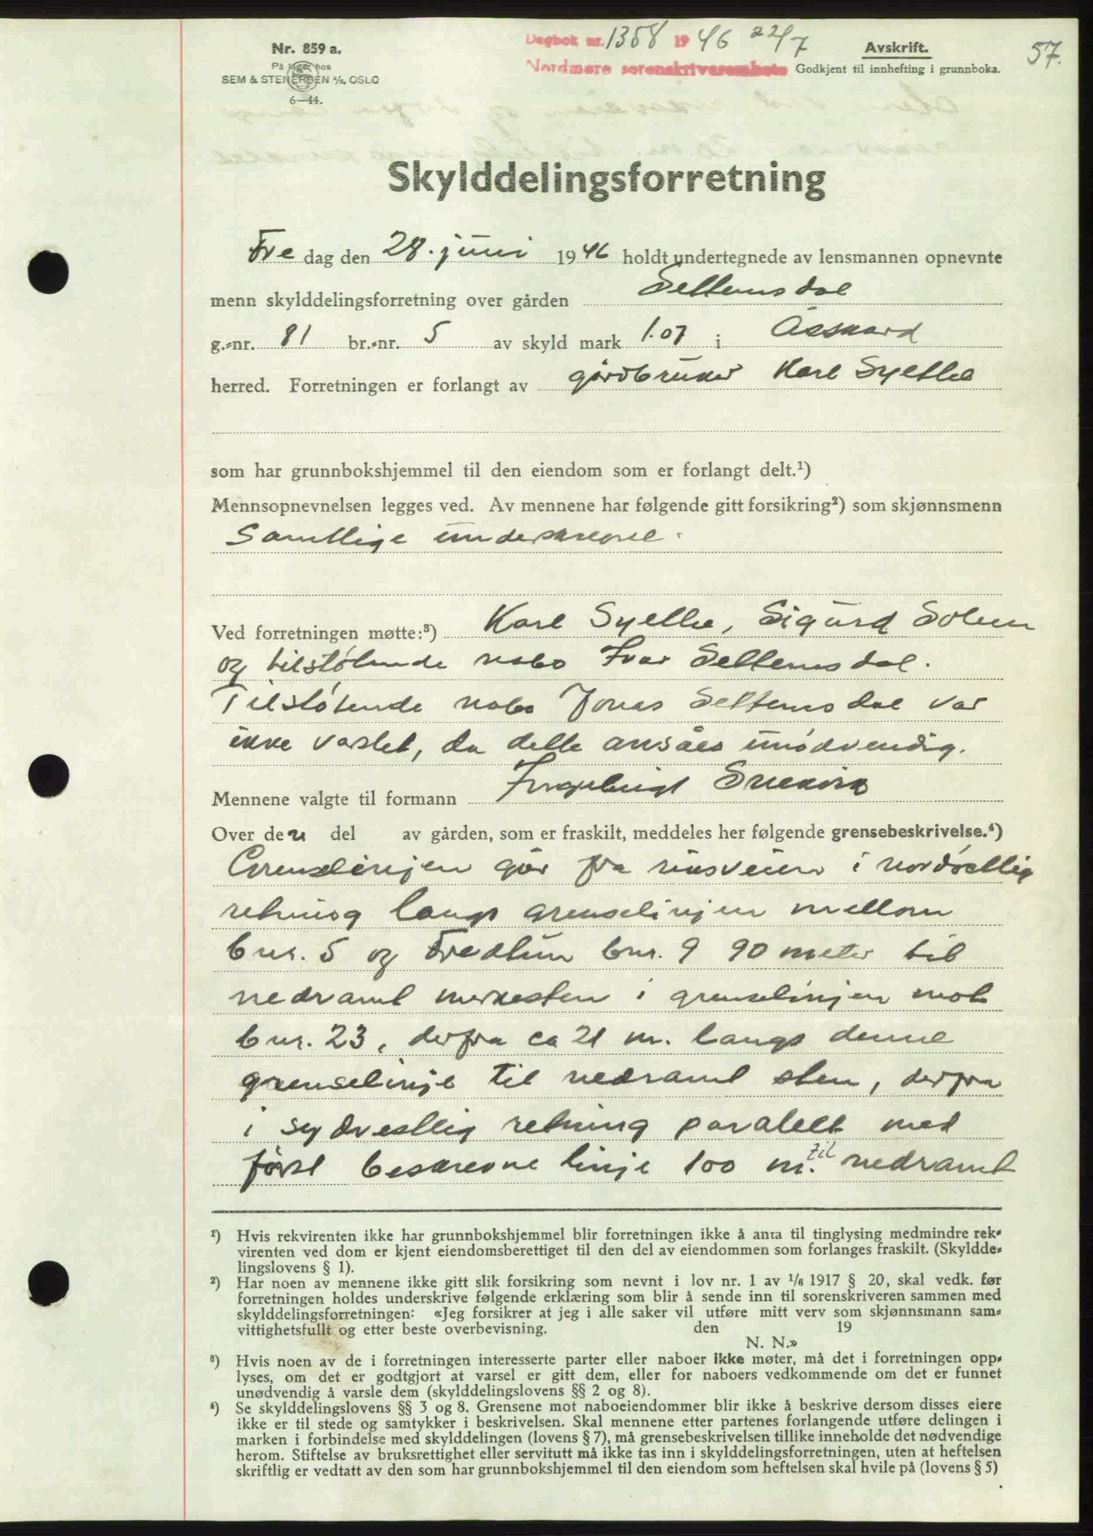 Nr. 859 a.
På lager hos
SEM & STENERSEN A/S, OSLO
6—44.
Dagbok nr. 1358 1946 22/7
Nordmøre sorenskriverembete
Avskrift.
Godkjent til innhefting i grunnboka.
57.
Skylddelingsforretning
Fre dag den 28. juni 1946 holdt undertegnede av lensmannen opnevnte
menn skylddelingsforretning over gården Settemsdal
g.-nr. 81 br.-nr. 5 av skyld mark 1.07 i Åsskard
herred. Forretningen er forlangt av gårdbruker Karl Sylthe
som har grunnbokshjemmel til den eiendom som er forlangt delt.¹)
Mennsopnevnelsen legges ved. Av mennene har følgende gitt forsikring²) som skjønnsmenn
Samtlige underskrevne.
Ved forretningen møtte:³) Karl Sylthe, Sigurd Solem
og tilstøtende nabo Ivar Settemsdal.
Tilstøtende nabo Jonas Settemsdal var
ikke varslet, da dette ansåes unødvendig.
Mennene valgte til formann Ingebrigt
Over den del av gården, som er fraskilt, meddeles her følgende grensebeskrivelse.⁴)
Grenselinjen går fra riksveien i nordøstlig
retning langs grenselinjen mellom
bnr. 5 og Fredlun bnr. 9 90 meter til
nedramt merkesten i grenselinjen mot
bnr. 23, derfra ca 21 m. langs denne
grenselinje til nedramt sten, derfra
i sydvestlig retning paralelt med
først beskrevne linje 100 m. til nedramt
¹) Hvis rekvirenten ikke har grunnbokshjemmel blir forretningen ikke å anta til tinglysing medmindre rek-
virenten ved dom er kjent eiendomsberettiget til den del av eiendommen som forlanges fraskilt. (Skyldde-
lingslovens § 1).
²) Har noen av mennene ikke gitt slik forsikring som nevnt i lov nr. 1 av 1/6 1917 § 20, skal vedk. før
forretningen holdes underskrive følgende erklæring som blir å sende inn til sorenskriveren sammen med
skylddelingsforretningen: «Jeg forsikrer at jeg i alle saker vil utføre mitt verv som skjønnsmann sam-
vittighetsfullt og etter beste overbevisning. den 19
N. N.»
³) Hvis noen av de i forretningen interesserte parter eller naboer ikke møter, må det i forretningen opp-
lyses, om det er godtgjort at varsel er gitt dem, eller for naboers vedkommende om det er funnet
unødvendig å varsle dem (skylddelingslovens §§ 2 og 8).
⁴) Se skylddelingslovens §§ 3 og 8. Grensene mot naboeiendommer blir ikke å beskrive dersom disses eiere
ikke er til stede og samtykker i beskrivelsen. Skal mennene etter partenes forlangende utføre delingen i
marken i forbindelse med skylddelingen (lovens § 7), må grensebeskrivelsen tillike inneholde det nødvendige
herom. Stiftelse av bruksrettighet eller servitutt må ikke tas inn i skylddelingsforretningen, uten at heftelsen
skriftlig er vedtatt av den som har grunnbokshjemmel til den eiendom som heftelsen skal hvile på (lovens § 5)